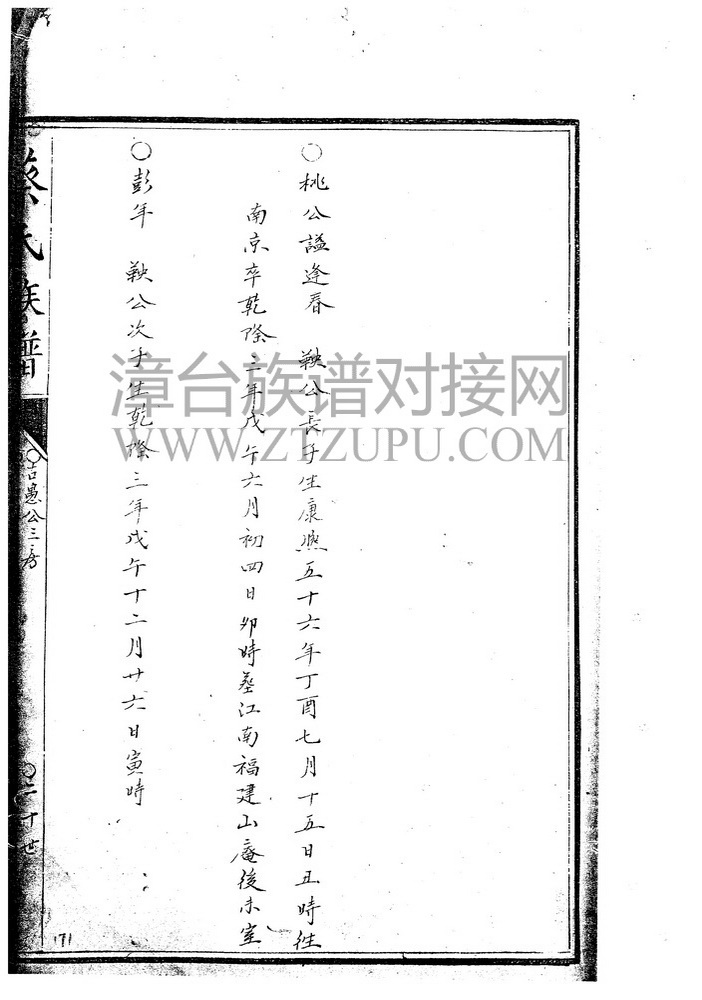 ○桃公謚逢春 鞅公長子生康熙五十六年丁酉七月十五日丑時往
南京卒乾隆三年戊午六月初四日卯時墓江南福建山庵後未室
○彭年 鞅公次子生乾隆三年戊午十二月廿六日寅時
蔡氏族譜
○古愚公三房
○二十世
171
漳台族谱对接网
WWW.ZTZUPU.COM